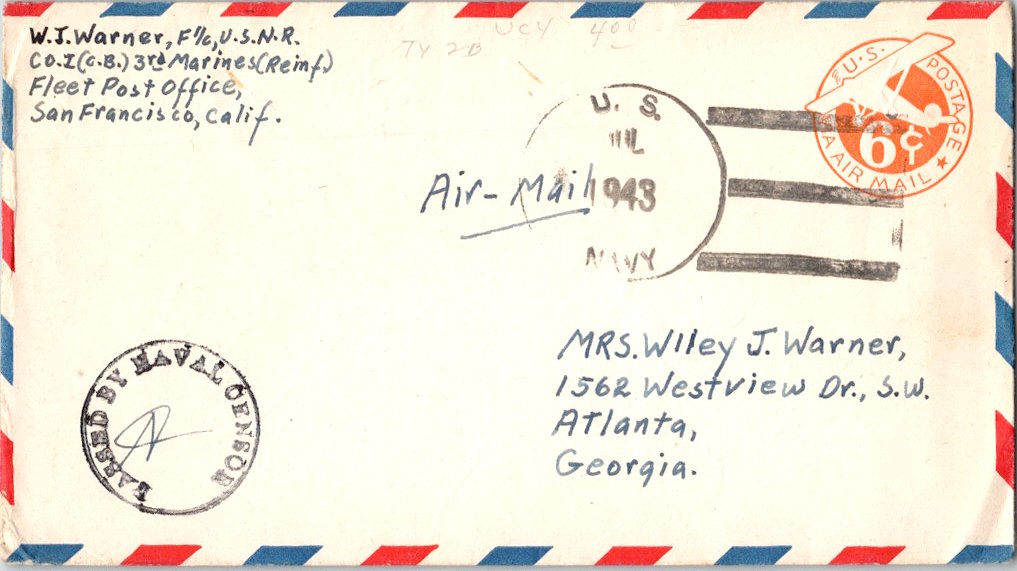 UCY 400
TY 2B
W.J. Warner, F 1/c, U.S.N.R.
CO. I (C.B.) 3rd Marines (Reinf.)
Fleet Post Office,
San Francisco, Calif.
U.S. POSTAGE
6¢
VIA AIR MAIL
U. S.
JUL
1943
NAVY
Air-Mail
MRS. Wiley J. Warner,
1562 Westview Dr., S.W.
Atlanta,
Georgia.
PASSED BY NAVAL CENSOR